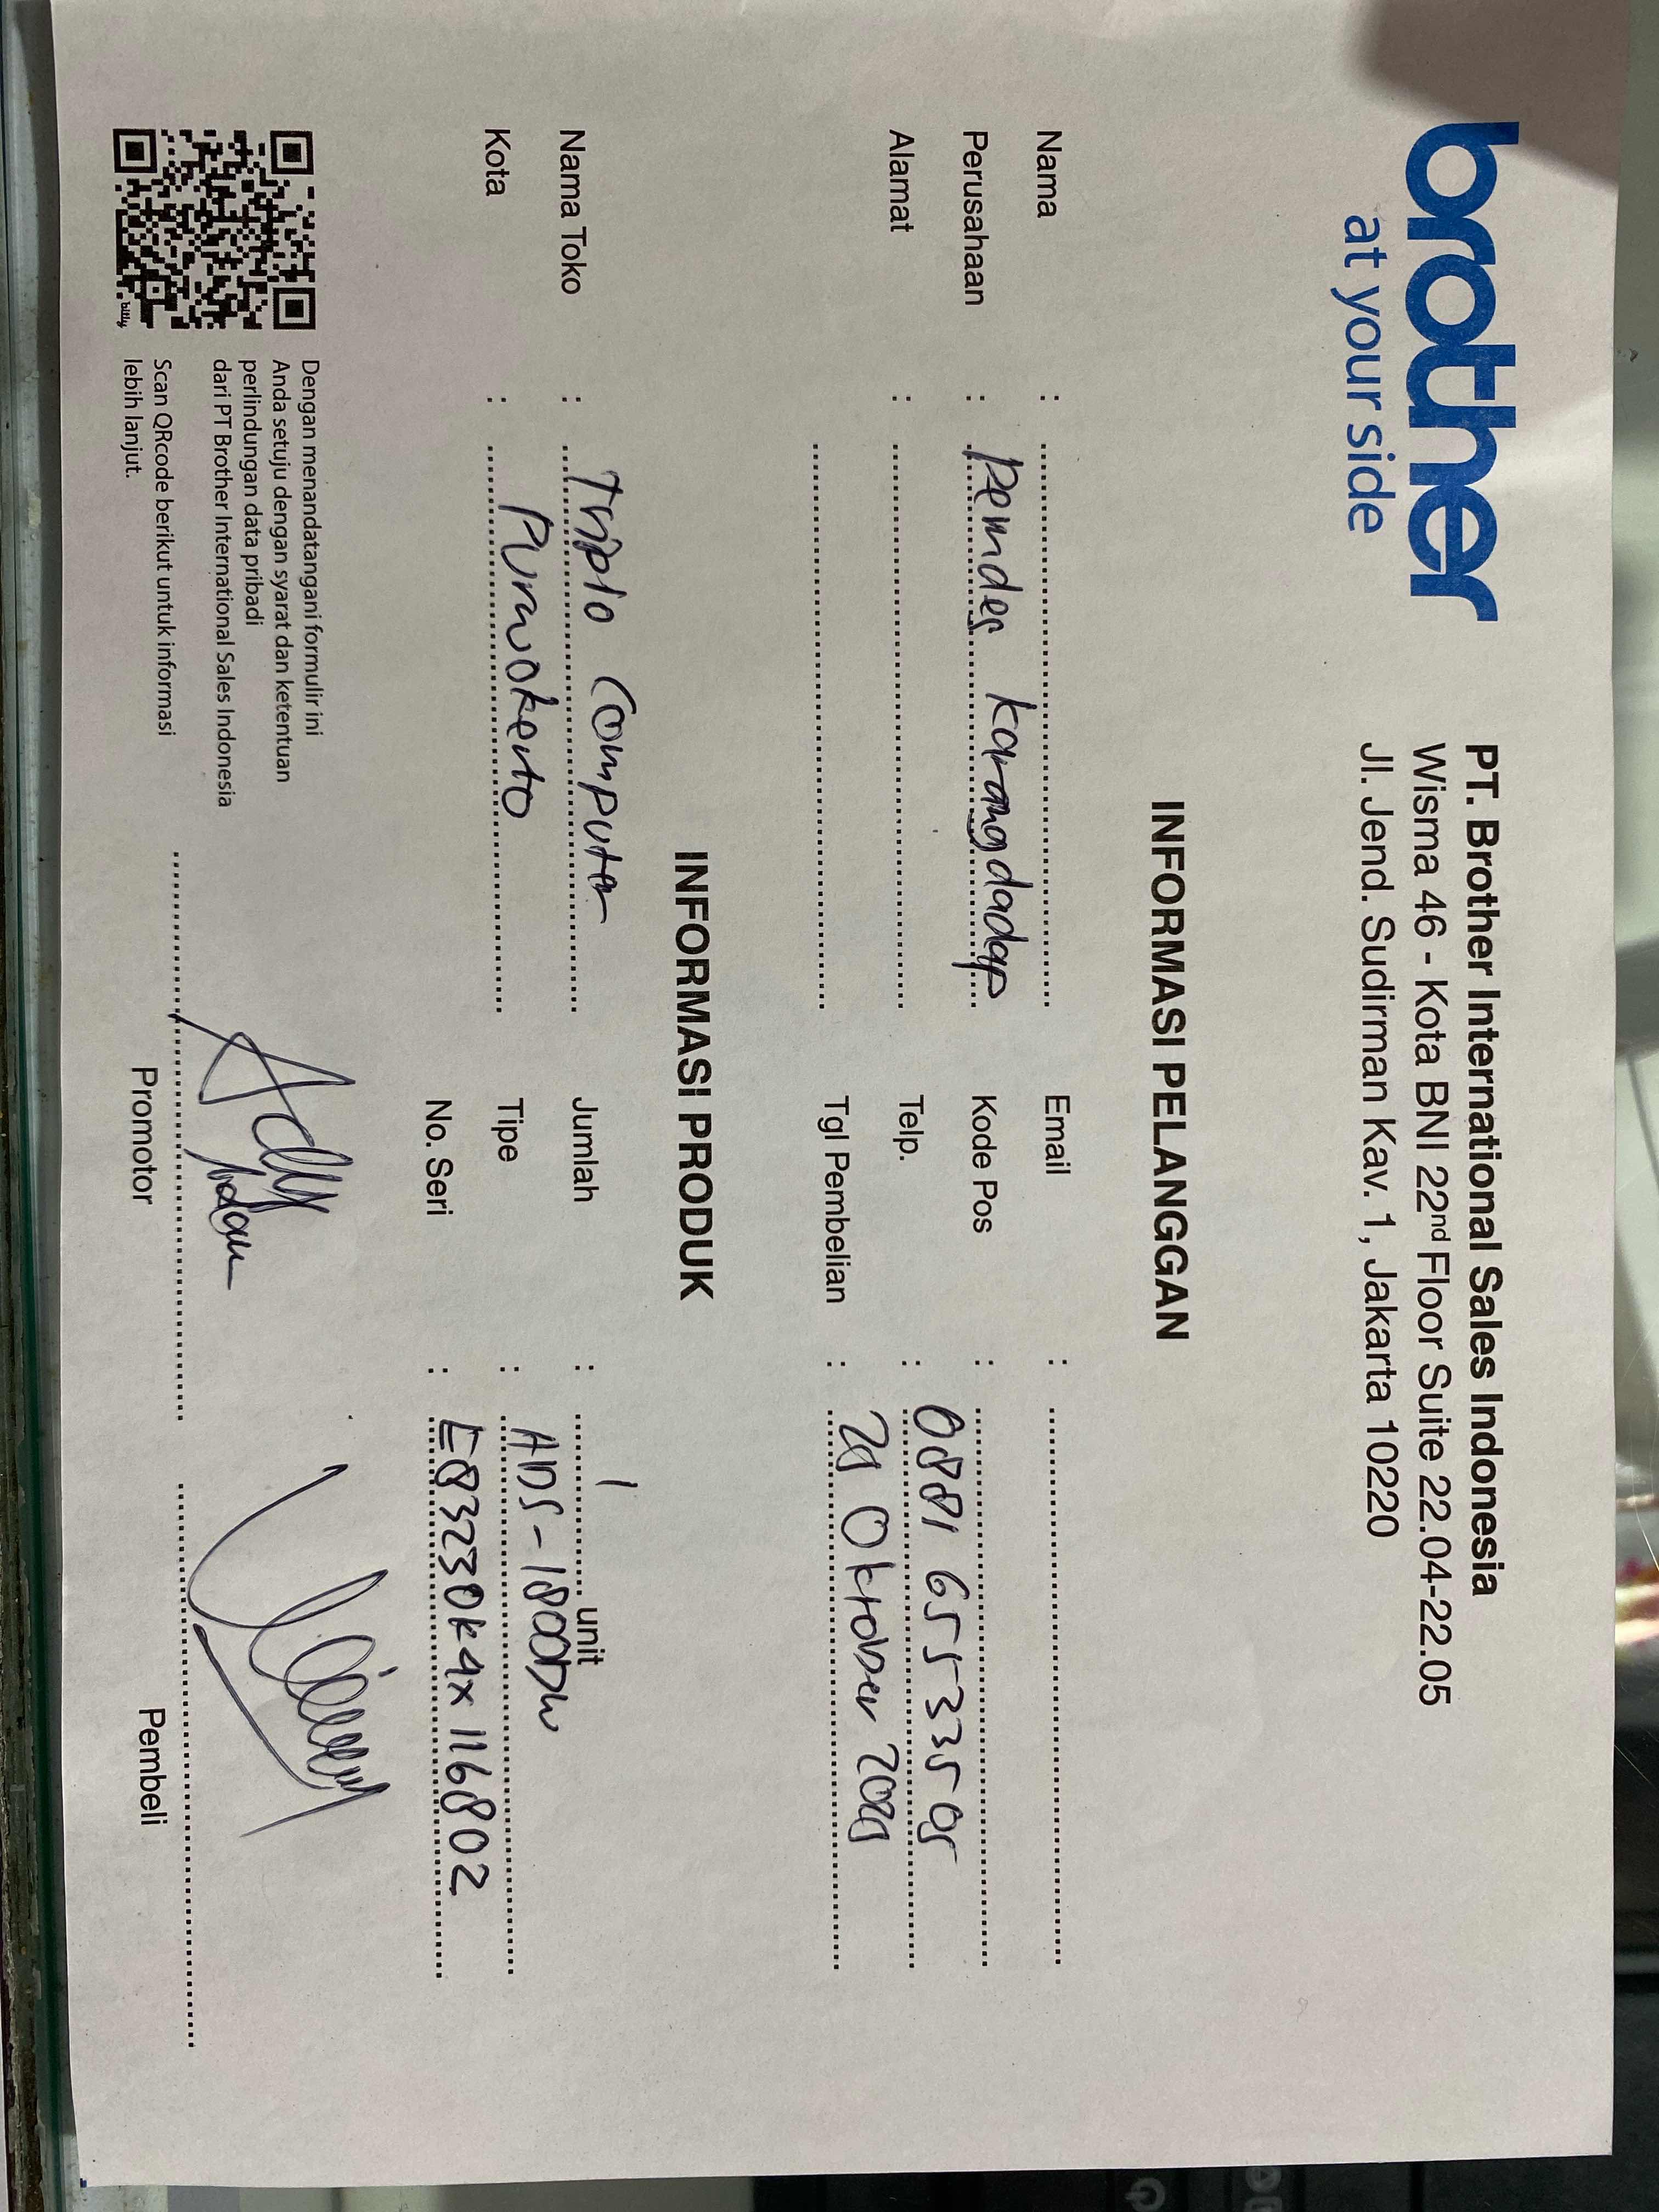 brother
at your side
PT. Brother International Sales Indonesia
Wisma 46 - Kota BNI 22nd Floor Suite 22.04-22.05
Jl. Jend. Sudirman Kav. 1, Jakarta 10220
INFORMASI PELANGGAN
Nama : Email :
Perusahaan : Pemdes karangdadap Kode Pos :
Alamat : Telp. : 0881 6555335 05
Tgl Pembelian : Oktober
INFORMASI PRODUK
Nama Toko : Triplo Computer Jumlah : 1 unit
Kota : Purwokerto Tipe : ADS-1800DW
No. Seri : E83230k4x116802
Dengan menandatangani formulir ini
Anda setuju dengan syarat dan ketentuan
perlindungan data pribadi
dari PT Brother International Sales Indonesia
Scan QRcode berikut untuk informasi
lebih lanjut.
billly.
Promotor Pembeli